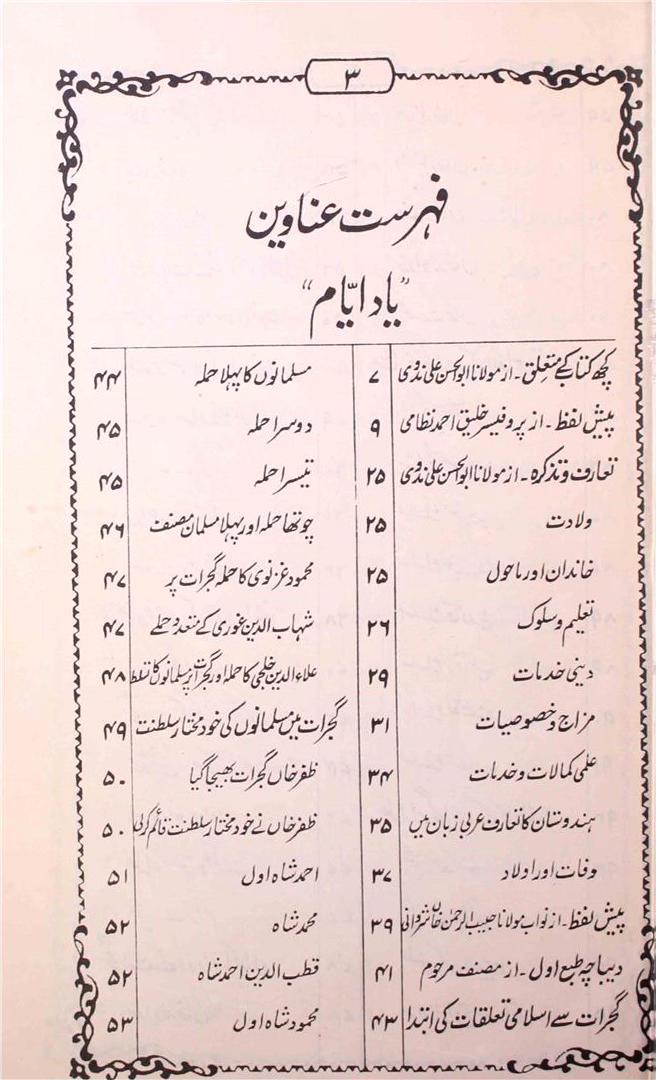 ۳
فہرست عناوین
"یاد ایّام"
کچھ کتاب کے متعلق ۔ از مولانا ابو الحسن علی ندوی ۷
پیش لفظ ۔ از پروفیسر خلیق احمد نظامی ۹
تعارف و تذکرہ ۔ از مولانا ابو الحسن علی ندوی ۲۵
ولادت ۲۵
خاندان اور ماحول ۲۵
تعلیم و سلوک ۲۶
دینی خدمات ۲۹
مزاج و خصوصیات ۳۱
علمی کمالات و خدمات ۳۴
ہندوستان کا تعارف عربی زبان میں ۳۵
وفات اور اولاد ۳۷
پیش لفظ ۔ از نواب مولانا حبیب الرحمٰن خاں شروانی ۳۹
دیباچہ طبع اول ۔ از مصنف مرحوم ۴۱
گجرات سے اسلامی تعلقات کی ابتدا ۴۳
مسلمانوں کا پہلا حملہ ۴۴
دوسرا حملہ ۴۵
تیسرا حملہ ۴۵
چوتھا حملہ اور پہلا مسلمان مصنف ۴۶
محمود غزنوی کا حملہ گجرات پر ۴۷
شہاب الدین غوری کے متعدد حملے ۴۷
علاء الدین خلجی کا حملہ اور گجرات پر مسلمانوں کا تسلط ۴۸
گجرات میں مسلمانوں کی خود مختار سلطنت ۴۹
ظفر خاں گجرات بھیجا گیا ۵۰
ظفر خاں نے خود مختار سلطنت قائم کرلی ۵۰
احمد شاہ اول ۵۱
محمد شاہ ۵۲
قطب الدین احمد شاہ ۵۲
محمود شاہ اول ۵۳